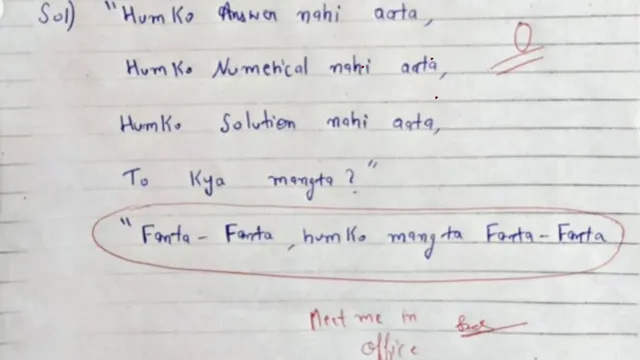 Sol) "HumKo Answer nahi aata,
0
HumKo Numerical nahi aata,
HumKo Solution nahi aata,
To Kya mangta?"
"Fanta - Fanta, humKo mangta Fanta - Fanta
Meet me in
office